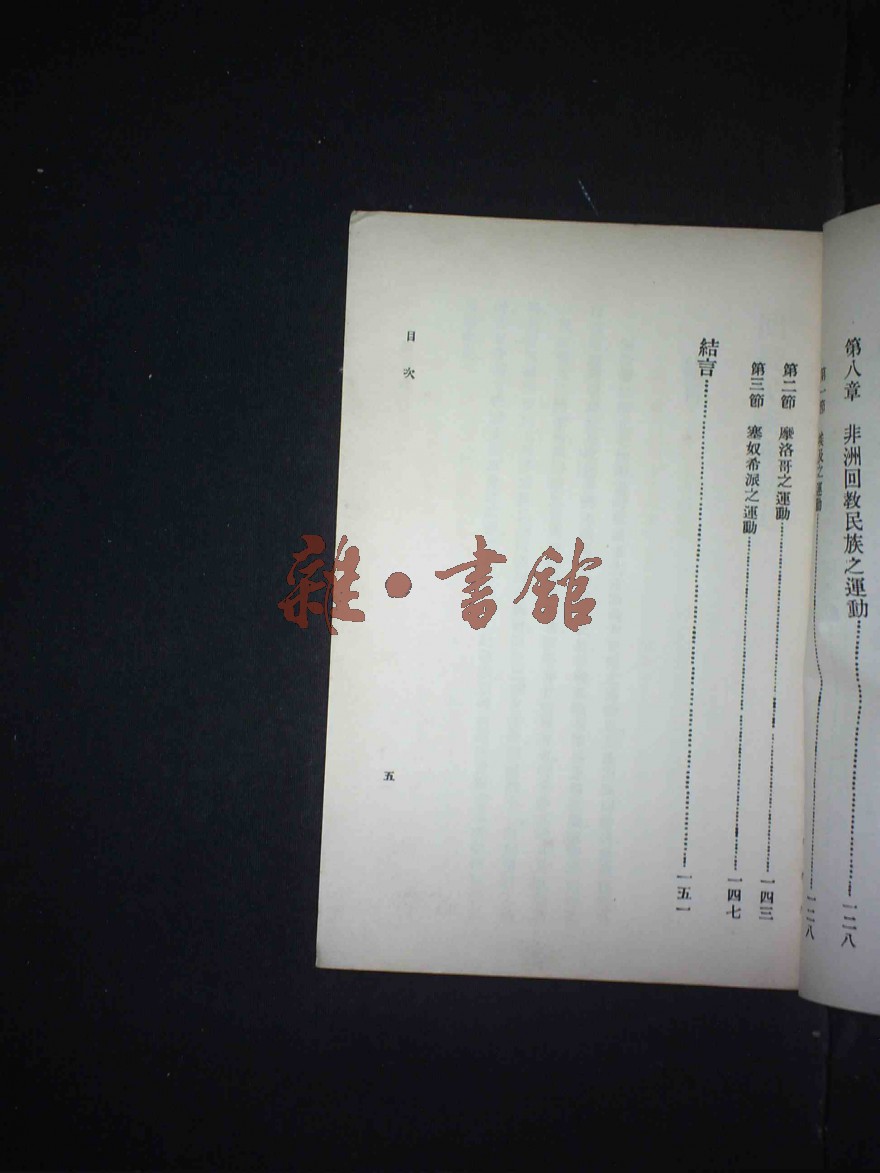 第八章 非洲回教民族之運動…………一二八
第一節 埃及之運動…………一二八
第二節 摩洛哥之運動…………一四三
第三節 塞奴希派之運動…………一四七
結言…………一五一
目次
五
雜·書館